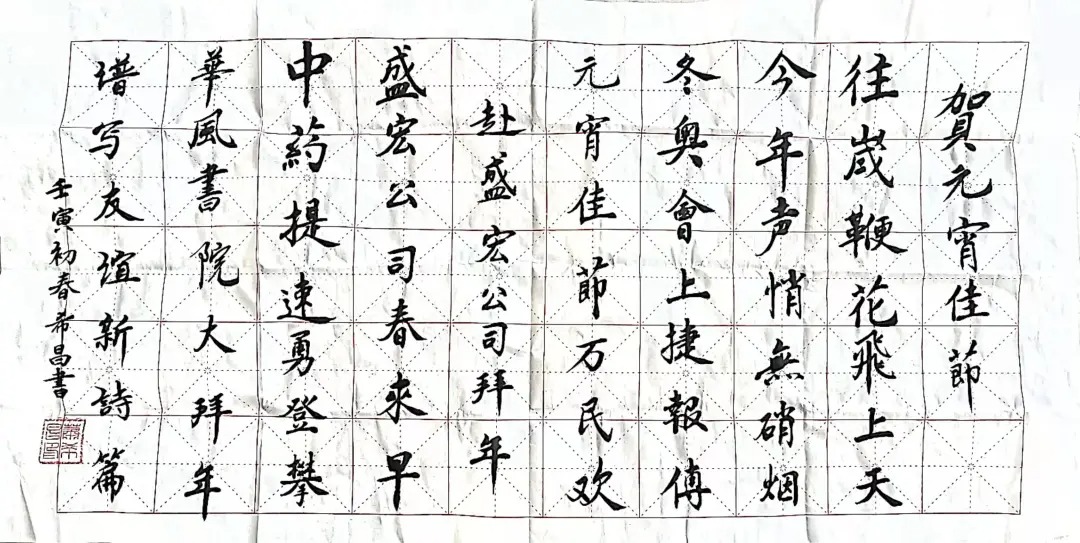 賀元宵佳節
往歲鞭花飛上天
今年声悄無硝烟
冬奥會上捷報傅
元宵佳節万民欢
赴盛宏公司拜年
盛宏公司春來早
中药提速勇登攀
華風書院大拜年
谱写友谊新詩篇
壬寅初春希昌書